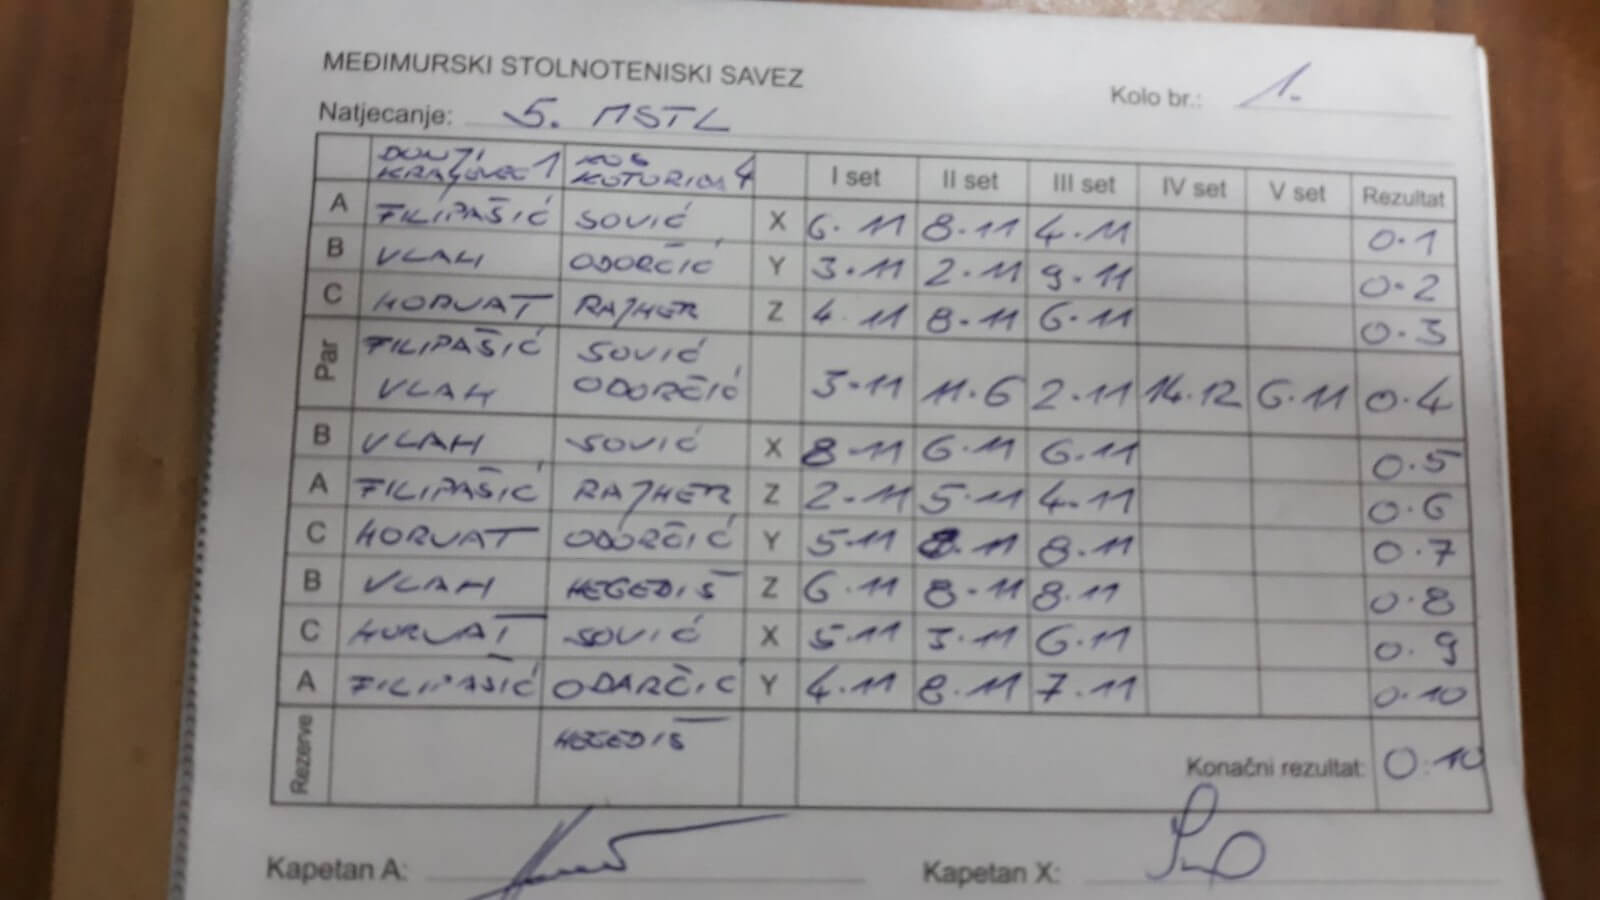 MEĐIMURSKI STOLNOTENISKI SAVEZ
Kolo br.: 1.
Natjecanje: 5. MSTL
DONJI KRALJEVEC 1 KOŠ KOTORIBA 4 I set II set III set IV set V set Rezultat
A FILIPAŠIĆ SOVIĆ X 6.11 8.11 4.11 0.1
B VLAH ODORČIĆ Y 3.11 2.11 9.11 0.2
C HORVAT RAJHER Z 4.11 8.11 6.11 0.3
Par FILIPAŠIĆ SOVIĆ
VLAH ODORČIĆ 3.11 11.6 2.11 14.12 6.11 0.4
B VLAH SOVIĆ X 8.11 6.11 6.11 0.5
A FILIPAŠIĆ RAJHER Z 2.11 5.11 4.11 0.6
C HORVAT ODORČIĆ Y 5.11 8.11 8.11 0.7
B VLAH HEGEDIŠ Z 6.11 8.11 8.11 0.8
C HORVAT SOVIĆ X 5.11 3.11 6.11 0.9
A FILIPAŠIĆ ODARČIĆ Y 4.11 8.11 7.11 0.10
Rezerve HEGEDIŠ
Konačni rezultat: 0.10
Kapetan A: Kapetan X: